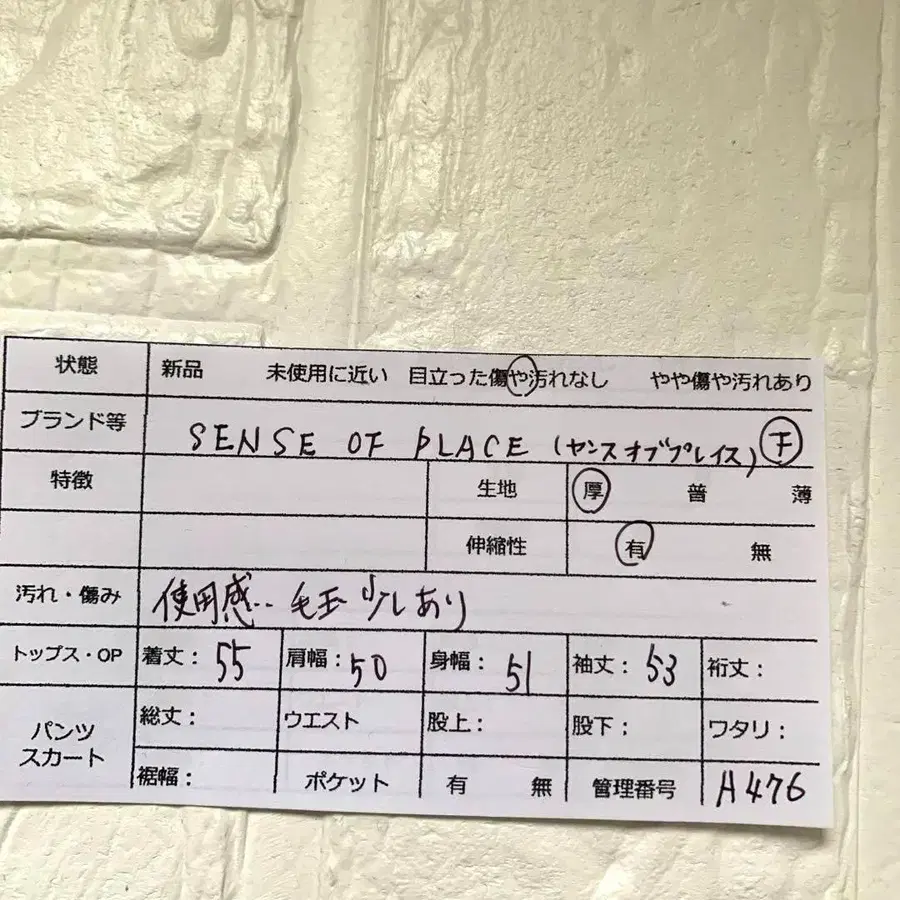 状態 新品 未使用に近い 目立った傷や汚れなし やや傷や汚れあり
ブランド等 SENSE OF PLACE (センスオブプレイス) F
特徴 生地 厚 普 薄
伸縮性 有 無
汚れ・傷み 使用感‥毛玉少しあり
トップス・OP 着丈: 55 肩幅: 50 身幅: 51 袖丈: 53 裄丈:
パンツ スカート
総丈: ウエスト 股上: 股下: ワタリ:
裾幅: ポケット 有 無 管理番号 A476